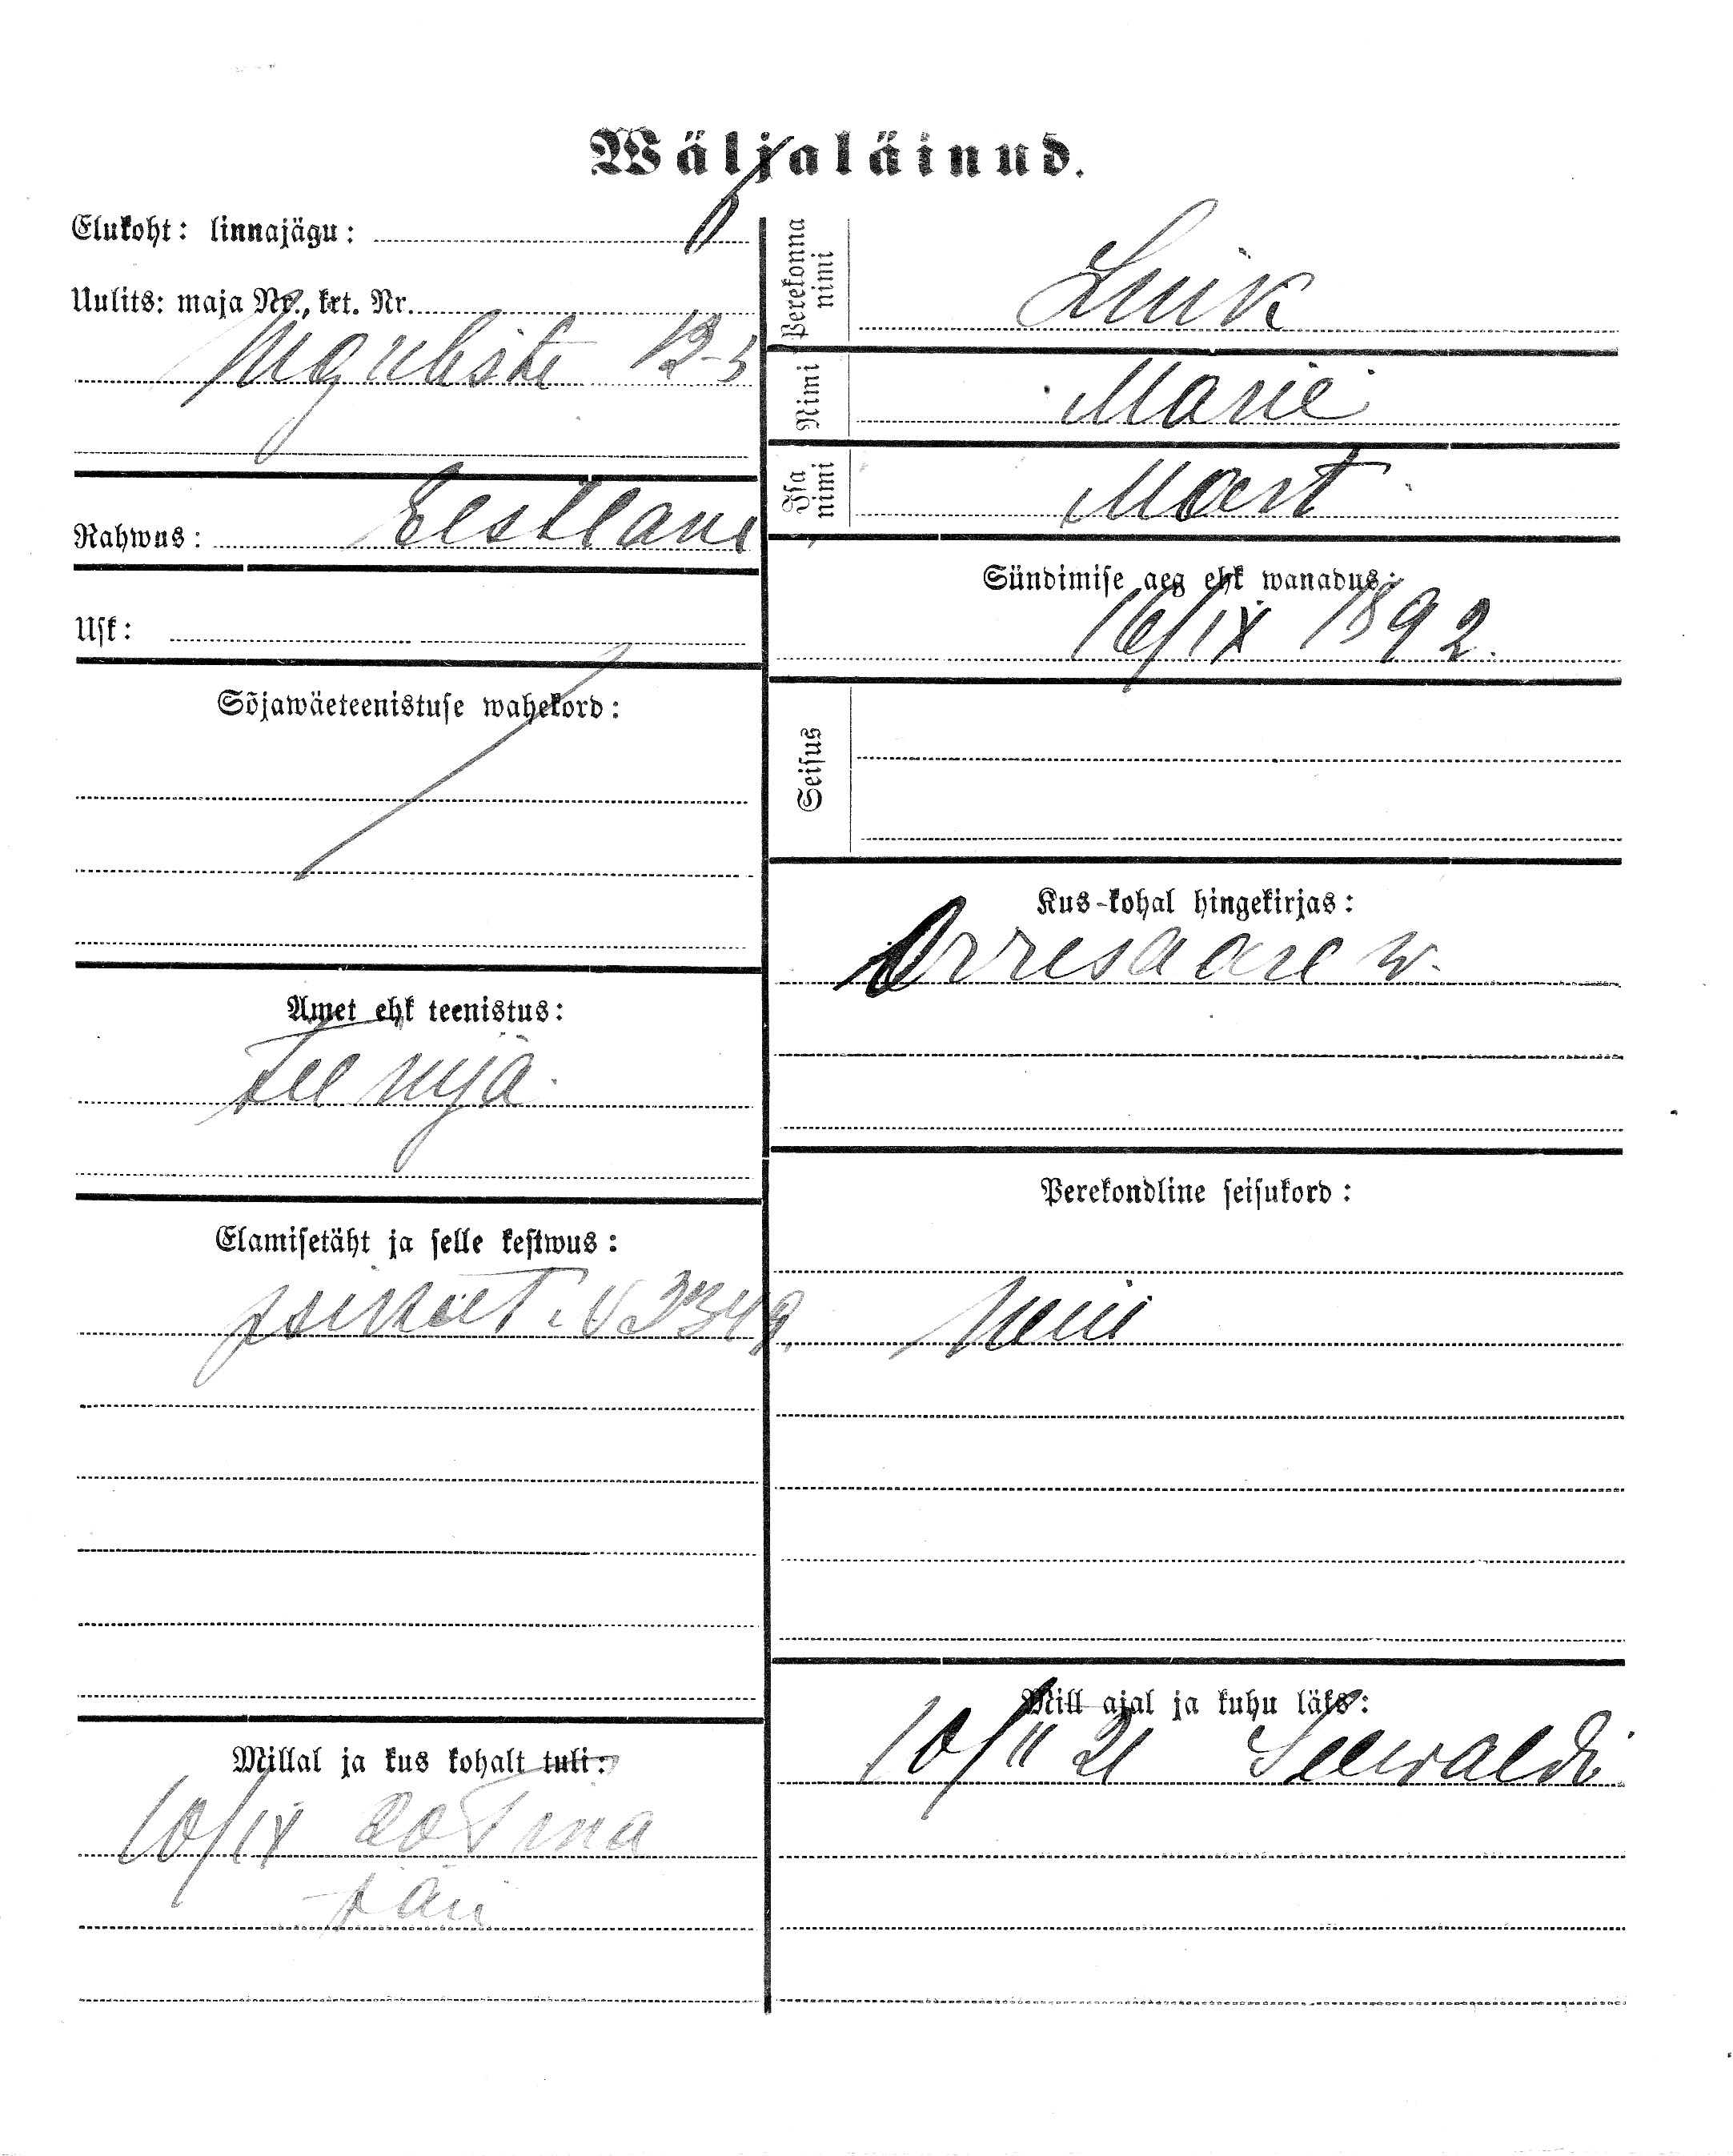 Wäljaläinud.
Elukoht: linnajägu:
Uulits: maja Nr., krt. Nr.
12-5
Rahwus: Eestlane
Usk:
Sõjawäeteenistuse wahekord:
Amet ehk teenistus:
Teenija
Elamisetäht ja selle kestwus:
Millal ja kus kohalt tuli:
10/IX 20
Perekonna nimi Luik
Nimi Marie
Isa nimi Mart
Sündimise aeg ehk wanadus:
16/IX 1892.
Seisus
Kus-kohal hingekirjas:
Orresaare w.
Perekondline seisukord:
Neiu
Mill ajal ja kuhu läks:
10/II 21 Seewaldi